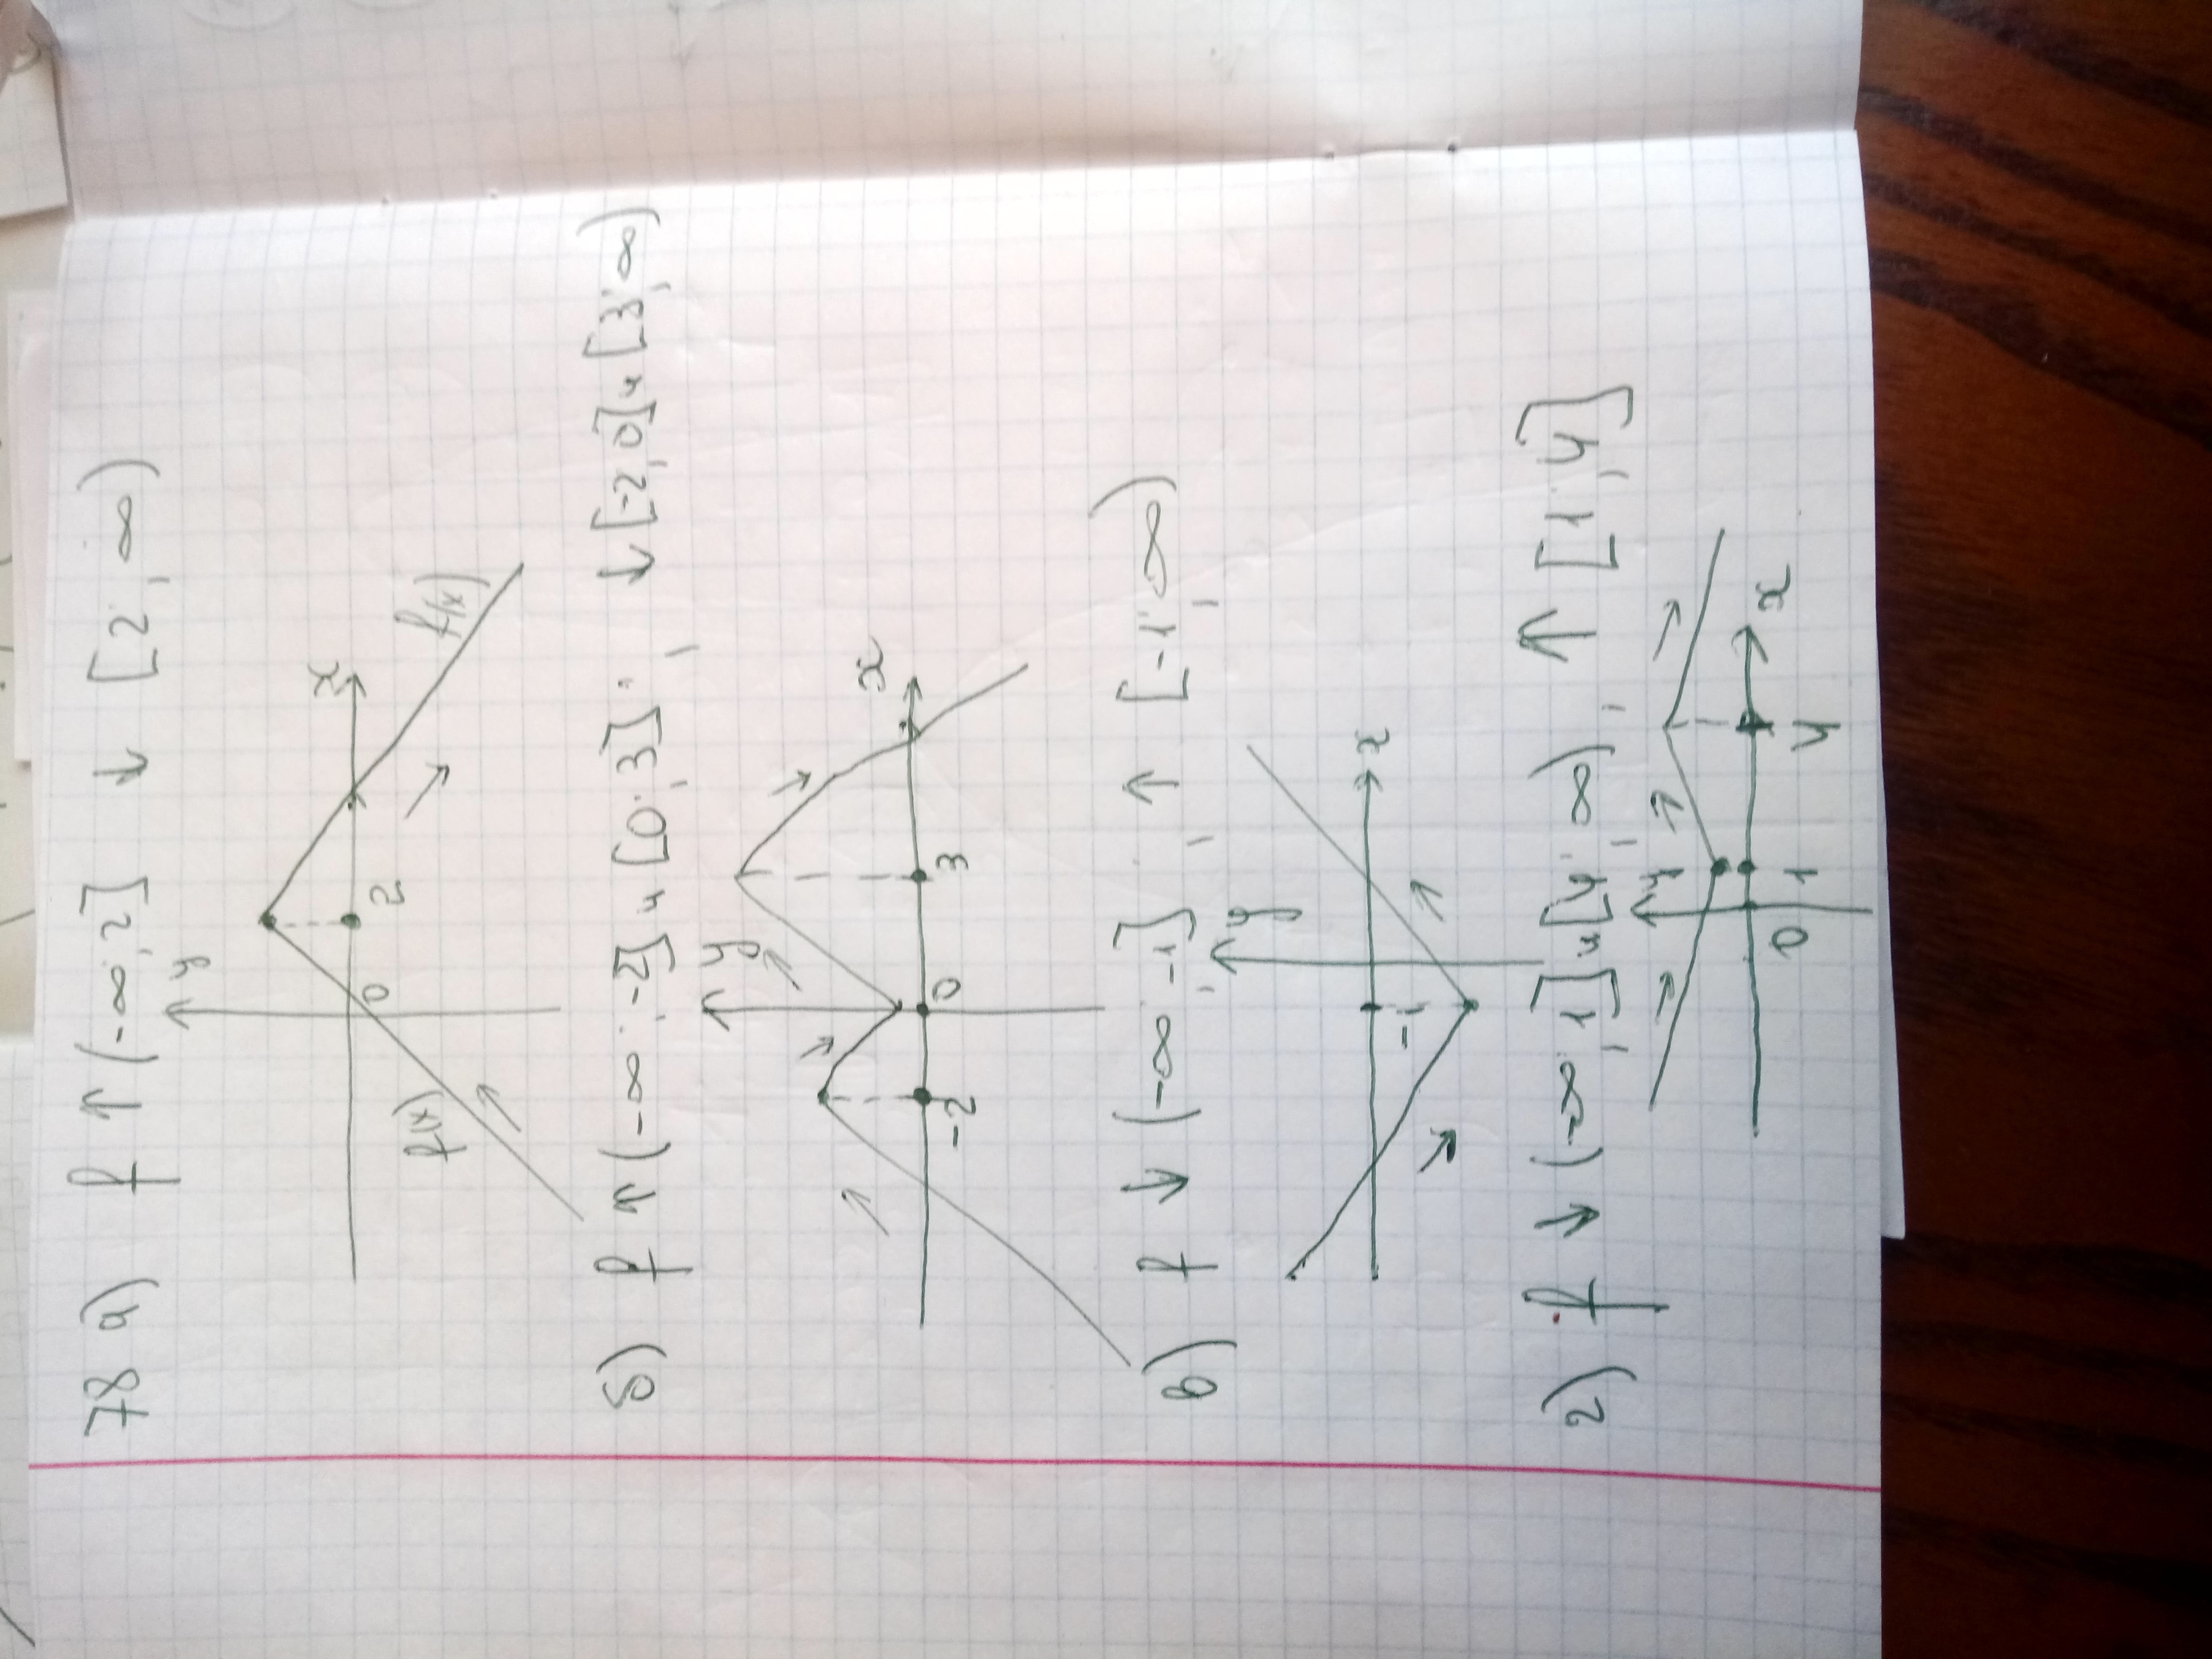 78 а) f ↑ (-∞; 2] ↓ [2; ∞)
y
x
0 2
f(x) f(x)
б) f ↑ (-∞; -2] и [0; 3], ↓ [-2; 0] и [3; ∞)
y
x
-2 0 3
в) f ↓ (-∞; -1], ↑ [-1; ∞)
y
x
-1
г) f ↓ (-∞; 1] и [4; ∞), ↑ [1; 4]
y
x
0 1 4